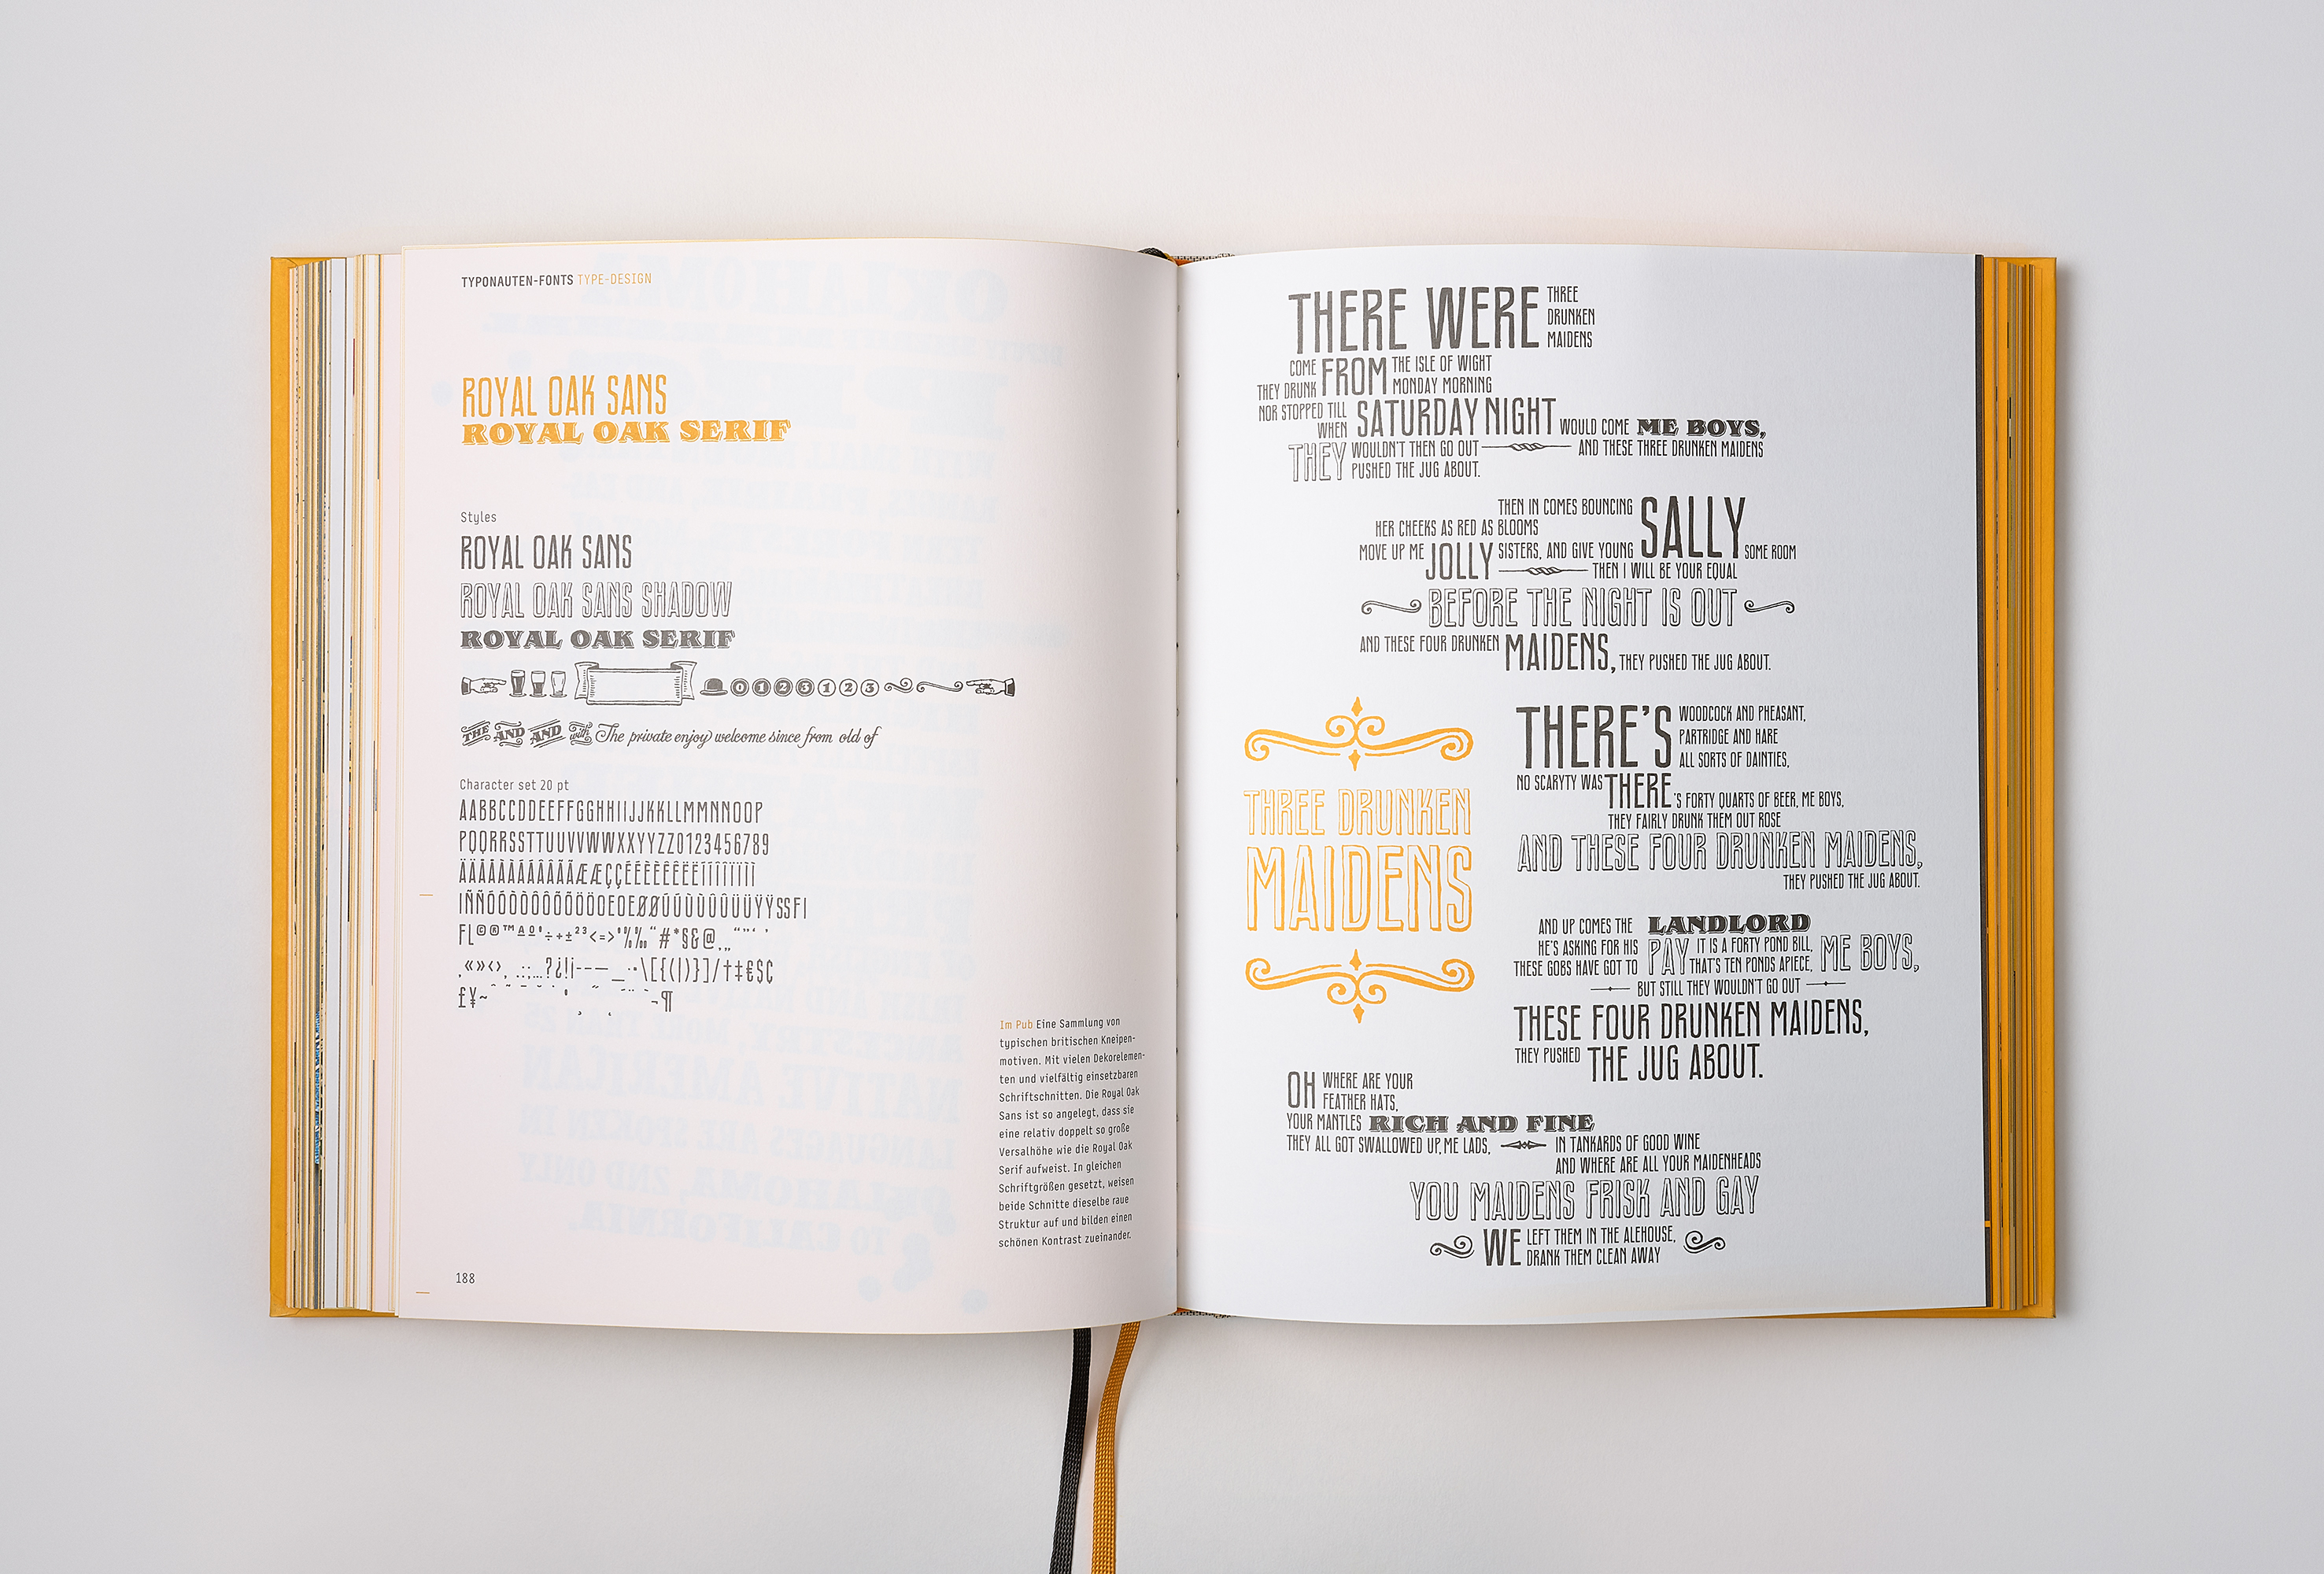 TYPONAUTEN-FONTS TYPE-DESIGN
ROYAL OAK SANS
ROYAL OAK SERIF
Styles
ROYAL OAK SANS
ROYAL OAK SANS SHADOW
ROYAL OAK SERIF
0 1 2 3 1 2 3
THE AND AND with The private enjoy welcome since from old of
Character set 20 pt
AABBCCDDEEFFGGHHIIJJKKLLMMNNOOP
PQQRRSSTTUUVVWWXXYYZZ0123456789
Im Pub Eine Sammlung von
typischen britischen Kneipen-
motiven. Mit vielen Dekorelemen-
ten und vielfältig einsetzbaren
Schriftschnitten. Die Royal Oak
Sans ist so angelegt, dass sie
eine relativ doppelt so große
Versalhöhe wie die Royal Oak
Serif aufweist. In gleichen
Schriftgrößen gesetzt, weisen
beide Schnitte dieselbe raue
Struktur auf und bilden einen
schönen Kontrast zueinander.
188
THERE WERE THREE
DRUNKEN
MAIDENS
COME FROM THE ISLE OF WIGHT
THEY DRUNK MONDAY MORNING
NOR STOPPED TILL SATURDAY NIGHT
WHEN WOULD COME ME BOYS,
THEY WOULDN'T THEN GO OUT AND THESE THREE DRUNKEN MAIDENS
PUSHED THE JUG ABOUT.
THEN IN COMES BOUNCING SALLY
HER CHEEKS AS RED AS BLOOMS
MOVE UP ME JOLLY SISTERS, AND GIVE YOUNG SOME ROOM
THEN I WILL BE YOUR EQUAL
BEFORE THE NIGHT IS OUT
AND THESE FOUR DRUNKEN MAIDENS, THEY PUSHED THE JUG ABOUT.
THREE DRUNKEN
MAIDENS
THERE'S WOODCOCK AND PHEASANT,
PARTRIDGE AND HARE
ALL SORTS OF DAINTIES,
NO SCARYTY WAS THERE
'S FORTY QUARTS OF BEER, ME BOYS,
THEY FAIRLY DRUNK THEM OUT ROSE
AND THESE FOUR DRUNKEN MAIDENS,
THEY PUSHED THE JUG ABOUT.
AND UP COMES THE LANDLORD
HE'S ASKING FOR HIS PAY IT IS A FORTY POND BILL, ME BOYS,
THESE GOBS HAVE GOT TO THAT'S TEN PONDS APIECE,
BUT STILL THEY WOULDN'T GO OUT
THESE FOUR DRUNKEN MAIDENS,
THEY PUSHED THE JUG ABOUT.
OH WHERE ARE YOUR
FEATHER HATS,
YOUR MANTLES RICH AND FINE
THEY ALL GOT SWALLOWED UP, ME LADS, IN TANKARDS OF GOOD WINE
AND WHERE ARE ALL YOUR MAIDENHEADS
YOU MAIDENS FRISK AND GAY
WE LEFT THEM IN THE ALEHOUSE,
DRANK THEM CLEAN AWAY